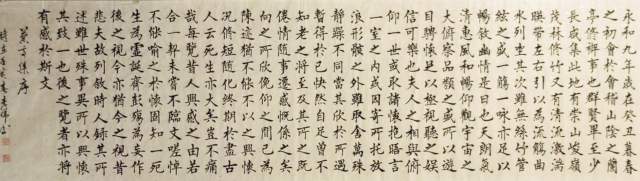 永和九年歲在癸丑暮春
之初會於會稽山陰之蘭
亭脩禊事也群賢畢至少
長咸集此地有崇山峻嶺
茂林脩竹又有清流激湍
暎帶左右引以為流觴曲
水列坐其次雖無絲竹管
絃之盛一觴一詠亦足以
暢敘幽情是日也天朗氣
清惠風和暢仰觀宇宙之
大俯察品類之盛所以遊
目騁懷足以極視聽之娛
信可樂也夫人之相與俯
仰一世或取諸懷抱晤言
一室之內或因寄所託放
浪形骸之外雖取舍萬殊
靜躁不同當其欣於所遇
暫得於己快然自足曾不
知老之將至及其所之既
倦情隨事遷感慨係之矣
向之所欣俛仰之間已為
陳迹猶不能不以之興懷
況脩短隨化終期於盡古
人云死生亦大矣豈不痛
哉每覽昔人興感之由若
合一契未嘗不臨文嗟悼
不能喻之於懷固知一死
生為虛誕齊彭殤為妄作
後之視今亦猶今之視昔
悲夫故列敘時人錄其所
述雖世殊事異所以興懷
其致一也後之覽者亦將
有感於斯文
蘭亭集序